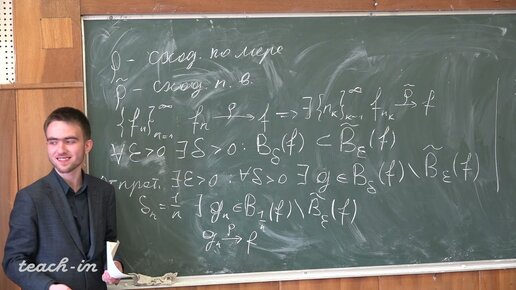 ρ - сход. по мере
ρ̃ - сход. п. в.
{fₙ}ₙ₌₁^∞ fₙ →^ρ f => ∃{nₖ}ₖ₌₁^∞ fₙₖ →^ρ̃ f
∀ε>0 ∃δ>0: B_δ(f) ⊂ B̃_ε(f)
прот. ∃ε>0: ∀δ>0 ∃ g ∈ B_δ(f) \ B̃_ε(f)
δₙ = 1/n ∃ gₙ ∈ B_{1/n}(f) \ B̃_ε(f)
gₙ →^ρ f
teach-in